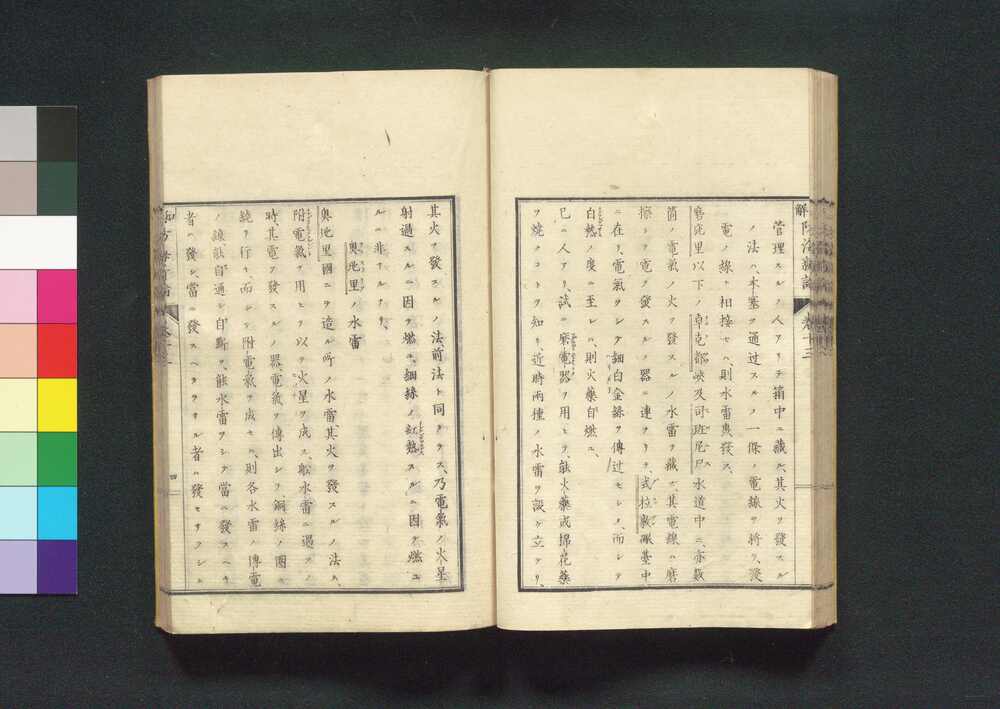 管理スルノ人アリテ箱中ニ藏ル、其火ヲ發スル
ノ法ハ、木塞ヲ通過スルノ一條ノ電線ヲ將テ、發
電ノ線ト相接セハ、則水雷轟發ス、
以下ノ卓克郡峽及司班尼尸水道中ニ、亦數
箇ノ電氣ノ火ヲ發スルノ水雷ヲ藏ス、其電線ハ磨
擦シテ電ヲ發スルノ器ニ連ヲリテ、式拉數礟臺中
ニ在リ、電氣ヲシテ細白金線ヲ傳过セシメ、而シテ
白熱ノ度ニ至レハ、則火藥自燃ユ、
已ニ人アリ、試ニ磨電器ヲ用ヒテ、鼓火藥或棉花藥
ヲ燒クコトヲ知リ、近時兩種ノ水雷ヲ設ケ立テリ、
卷十三
其火ヲ發スルノ法前法ト同シクス、乃電氣ノ火星
射過スルニ因テ燃ユ、細絲ノ紅熱スルニ因テ燃ユ
ルニ非サルナリ、
奧地里ノ水雷
奧地里國ニテ造ル所ノ水雷、其火ヲ發スルノ法ハ、
附電氣ヲ用ヒテ以テ火星ヲ成ス、船水雷ニ遇スノ
時其電ヲ發スルノ器、電氣ヲ傳出シテ、銅絲ノ圈ニ
繞リ行キ、而シテ附電氣ヲ成セハ、則各水雷ノ傳電
ノ線、能自通シ自斷ヲ、能水雷ヲシテ當ニ發スヘキ
者ハ發シ、當ニ發スヘカラサル者ハ發セサラシム
四